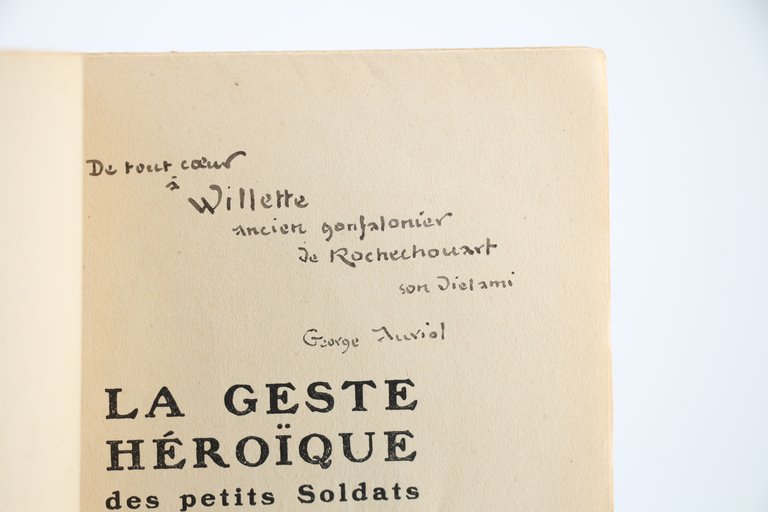 De tout cœur
à
Willette
ancien gonfalonier
de Rochechouart
son vieil ami
George Auriol
LA GESTE
HÉROÏQUE
des petits Soldats